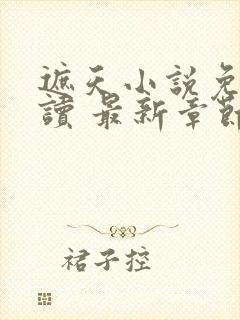 遮天小説免
讀 最新章節
裙子控